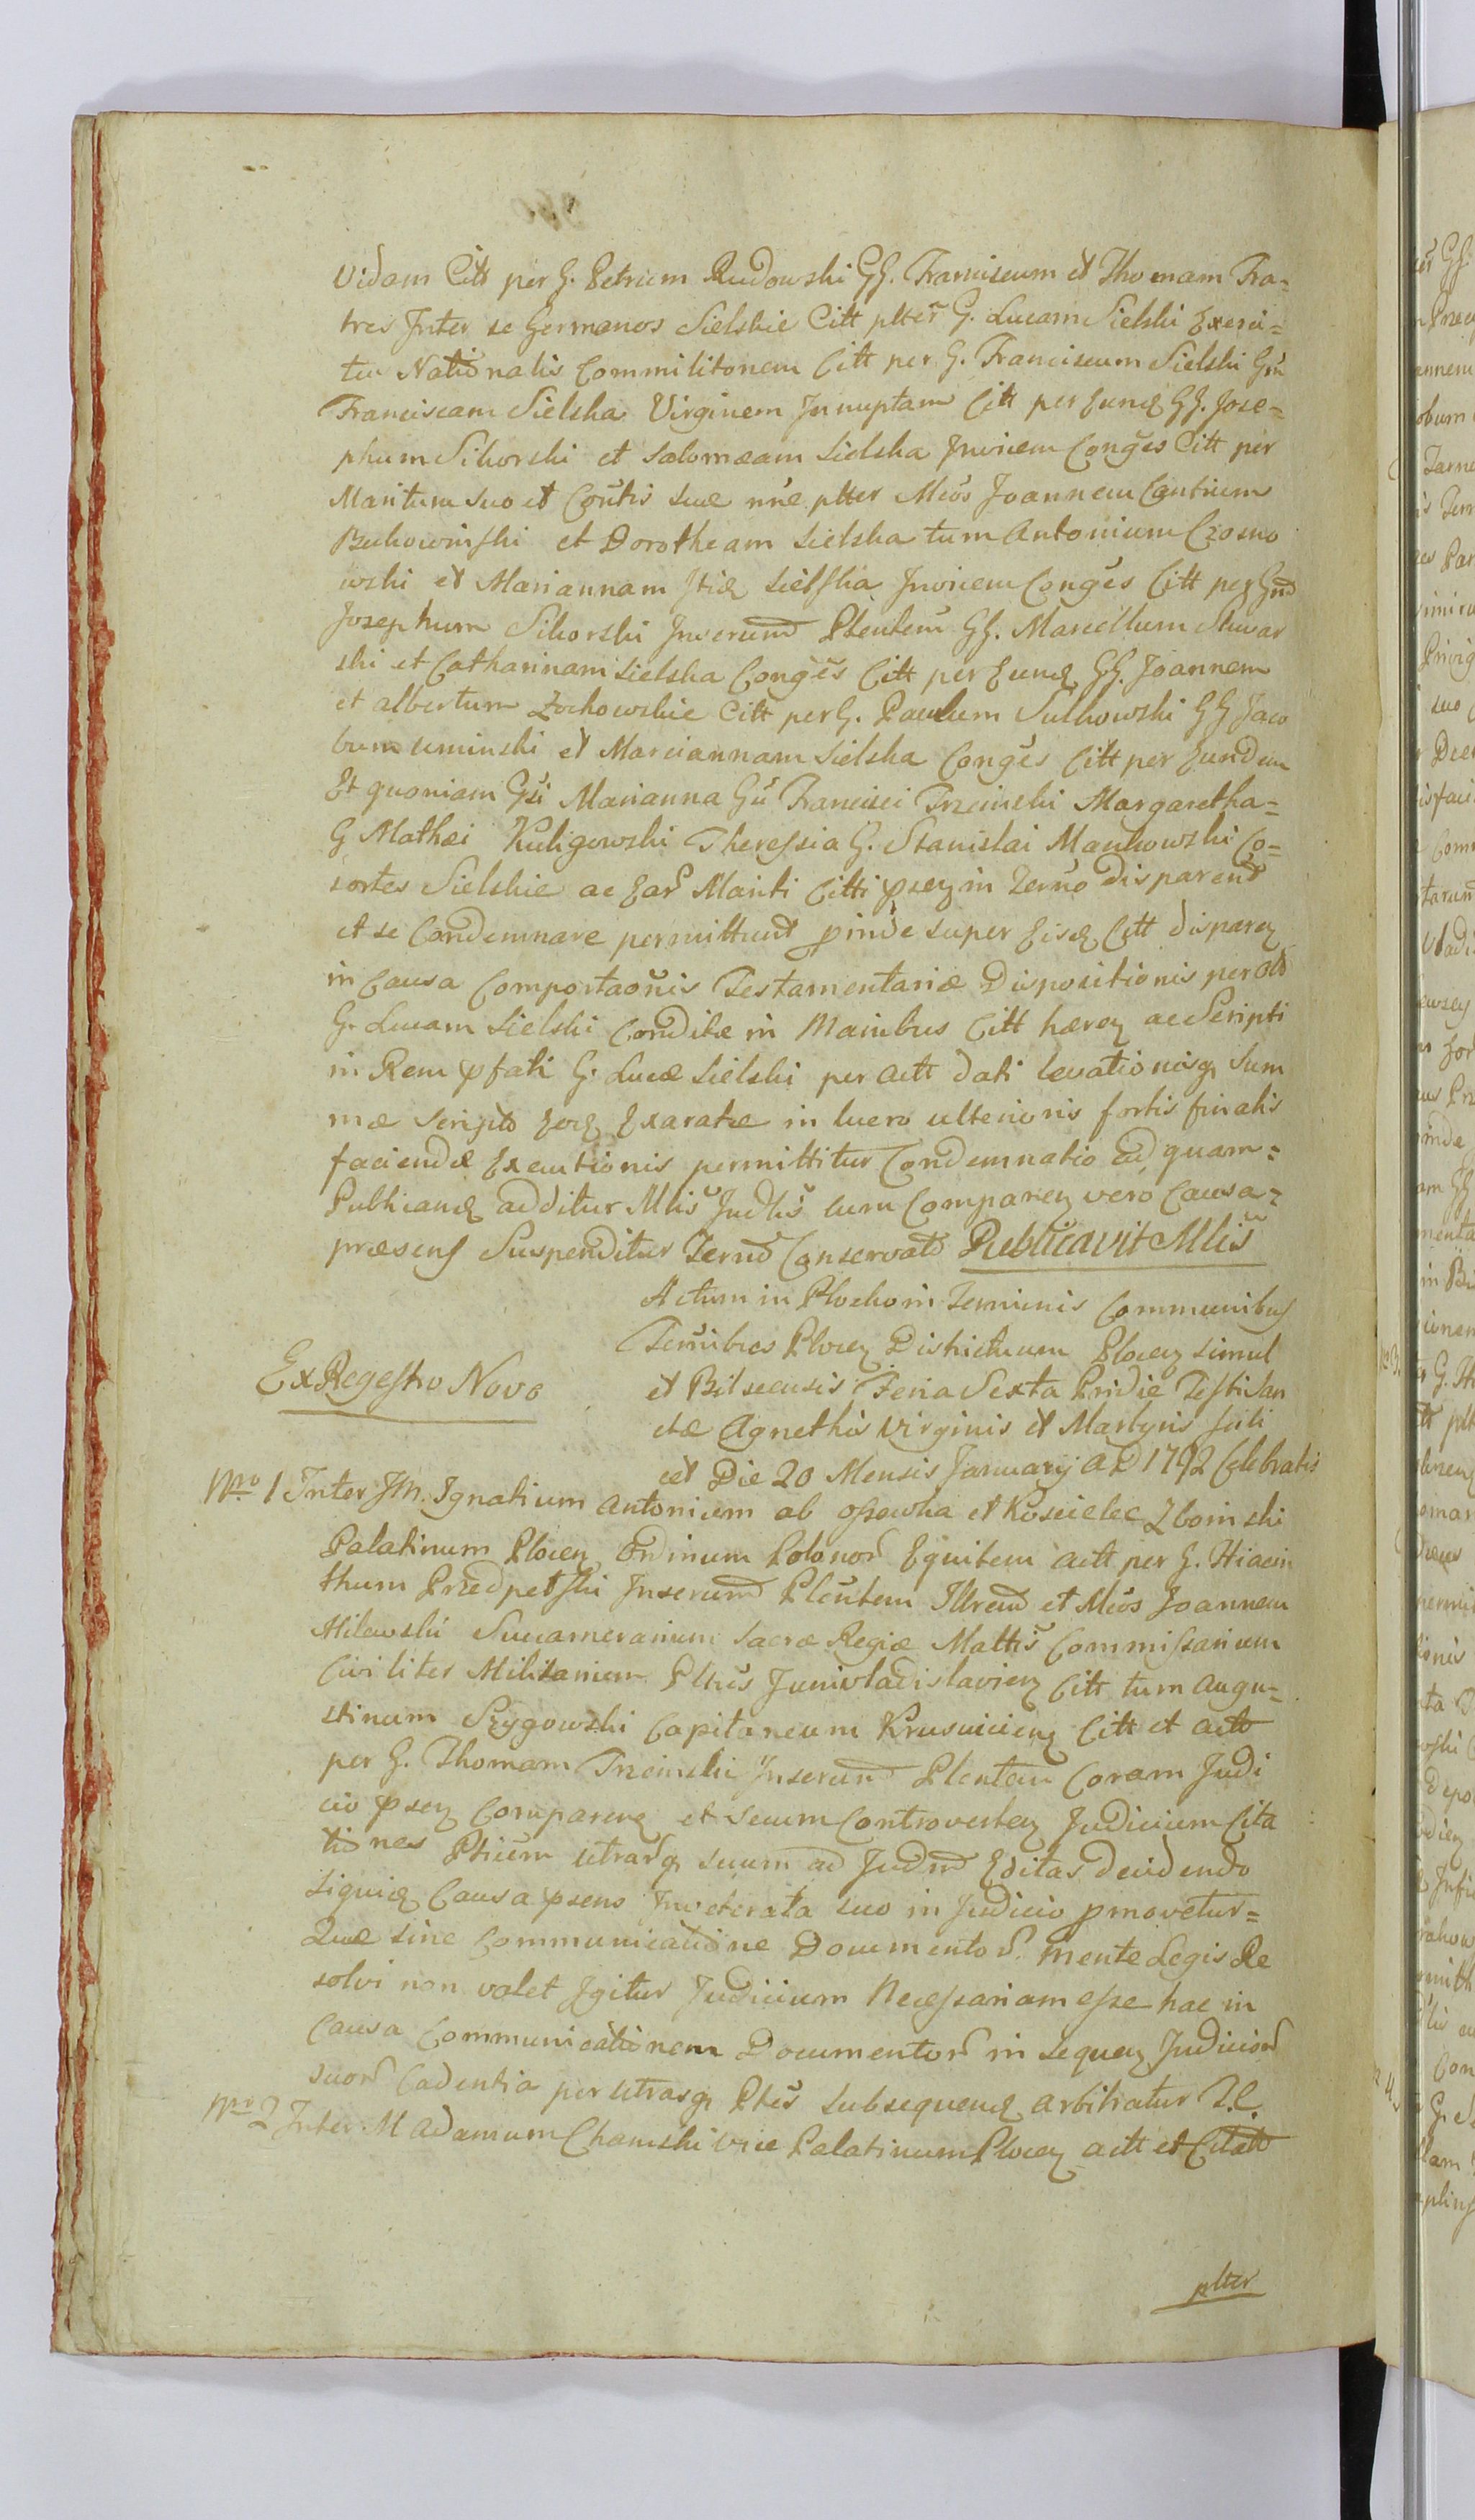 Vidam Citt per G. Petrum Rudowski GG. Franciscum et Thomam Fra=
tres Inter se Germanos Sielskie Citt plter G. Lucam Sielski Exerci=
tus Nationalis Commilitonem Citt per G. Franciscum Sielski Gm
Franciscam Sielska Virginem Innuptam Citt per Eunq GG. Jose=
phum Sikorski et Salomeam Sielska Invicem Conges Citt per
Maritum suo et Contis suæ nne plter Mcos Joannem Cantium
Bukowinski et Dorotheam Sielska tum Antonium Czosno
wski et Mariannam Itiq Sielska Invicem Conges Citt per Gnd
Josephum Sikorski Inserund Plentem GG. Marcellum Skwar
ski et Catharinam Sielska Conges Citt per Eunq GG. Joannem
et Albertum Zochowskie Citt per G. Paulum Sulkowski GG Jaco
bum Uminski et Marciannam Sielska Conges Citt per Eundem
Et quoniam Gsi Marianna Gu Francisci Trzcinski Margaretha=
G Mathæi Kuligowski Theressia G. Stanislai Mankowski Co=
sortes Sielskie ac Ear Mariti Citti psey in Terno disparend
et se Condemnare permittunt pinde super Eisq Citt disparey
in Causa Comportaonis Testamentariæ Dispositionis per Olt
G. Lucam Sielski Conditæ in Manibus Citt hærey ac Scripti
in Rem pfati G. Lucæ Sielski per Actt dati levationisq Sum
mæ Scripto Eoq Exaratæ in lucro ulterioris fortis finalis
faciendæ Executionis permittitur Condemnatio Ad quam=
Publicanq additur Mlis Judlis cum Comparey vero Causa=
præsens Suspenditur Terno Conservato Publicavit Mlis
Actum in Plocko in Terminis Communibus
Ternibus Plocey Districtuum Plocey simul
et Bilscensis Feria Sexta Pridie Festi San
Ex Regestro Novo
ctæ Agnethis Virginis et Martyris scili
cet Die 20 Mensis January A D 1792 Celebratis
Nro 1 Inter Im. Ignatium Antonium ab Ossowka et Koscielec Zboinski
Palatinum Plocey Ordinum Polonor Equitem Actt per G. Hiacin
thum Przedpelski Inserund Plentem Illrend et Mcos Joannem
Milewski Succamerarium Sacræ Regiæ Mattis Commissarium
Civiliter Militarium Pltus Junivladislaviey Citt tum Augu=
stinum Szygowski Capitaneum Krusvicieng Citt et Acto
per G. Thomam Trzcinski Inserund Plentem Coram Judi
cio psey Comparenq et secum Controvertey Judicium Cita
tiones Ptium Utrarq suum ad Judm Editas decidendo
Siquiq Causa psens Inveterata suo in Judicio pmovetur=
Quæ sine Communicatione Documentor mente Legis Re
solvi non valet Igitur Judicium Necessariam esse hac in
Causa Communicationem Documentor in sequey Judicior
suor Cadentia per Utrasq Ptes subsequenq arbitratur T.C.
Nro 2 Inter M Adamum Chamski Vice Palatinum Plocey Actt et Citatt
plter